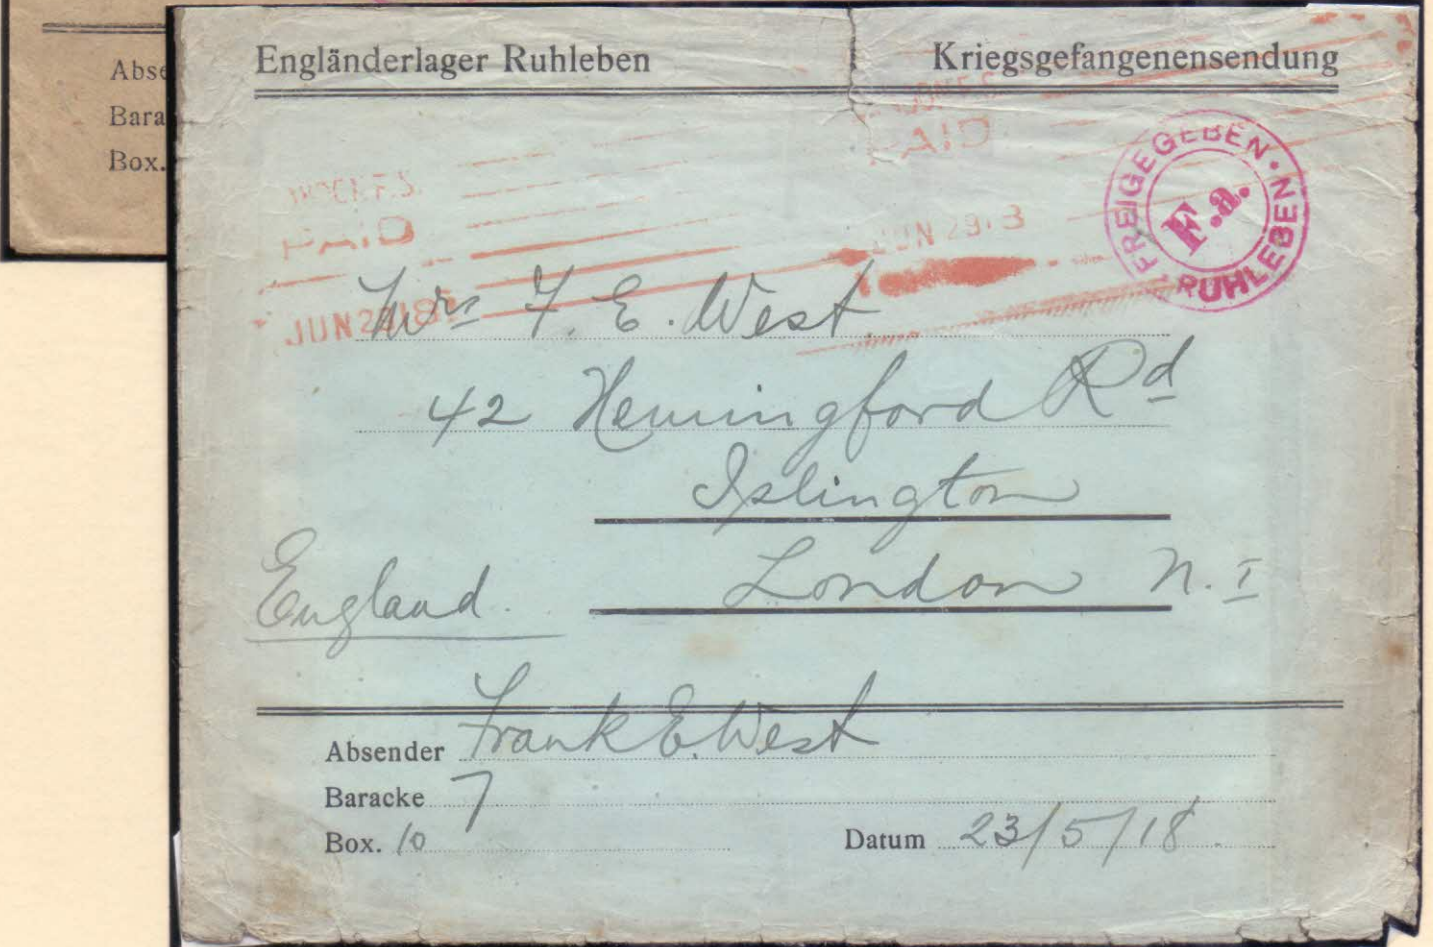 Abse
Bara
Box.
Engländerlager Ruhleben Kriegsgefangenensendung
PAID
PAID
FREIGEGEBEN · RUHLEBEN
F.a.
JUN
JUN
Mrs F. E. West
42 Hemingford Rd
Islington
London N. I
England.
Absender Frank E. West
Baracke 7
Box. 10 Datum 23/5/18.